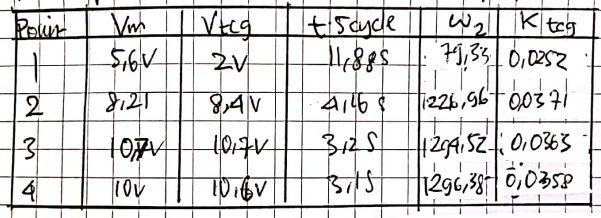 Point Vm Vtcg t 5cycle ω2 K tcg
1 5,6V 2V 11,88S 79,33 0,0252
2 8,21 8,4V 4,16 S 226,96 0,0371
3 10,7V 10,7V 3,2 S 294,52 0,0363
4 10V 10,6V 3,1S 296,38 0,0358